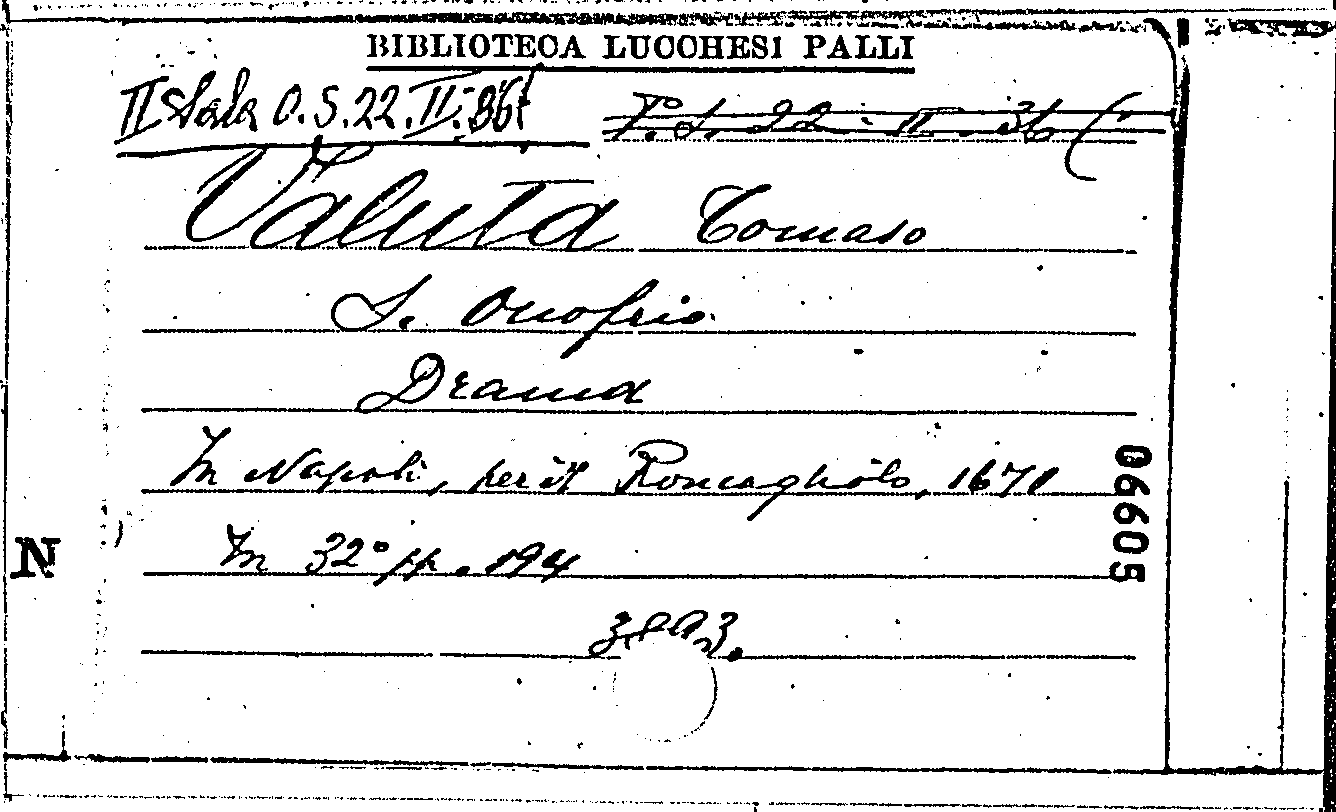 BIBLIOTECA LUCCHESI PALLI
II Sala O.5.22.II.86
22. II. 36
Valuta Tomaso
S. Onofrio
Drama
In Napoli, per il Roncagliolo, 1671
In 32° pp. 194
3893.
N
06605